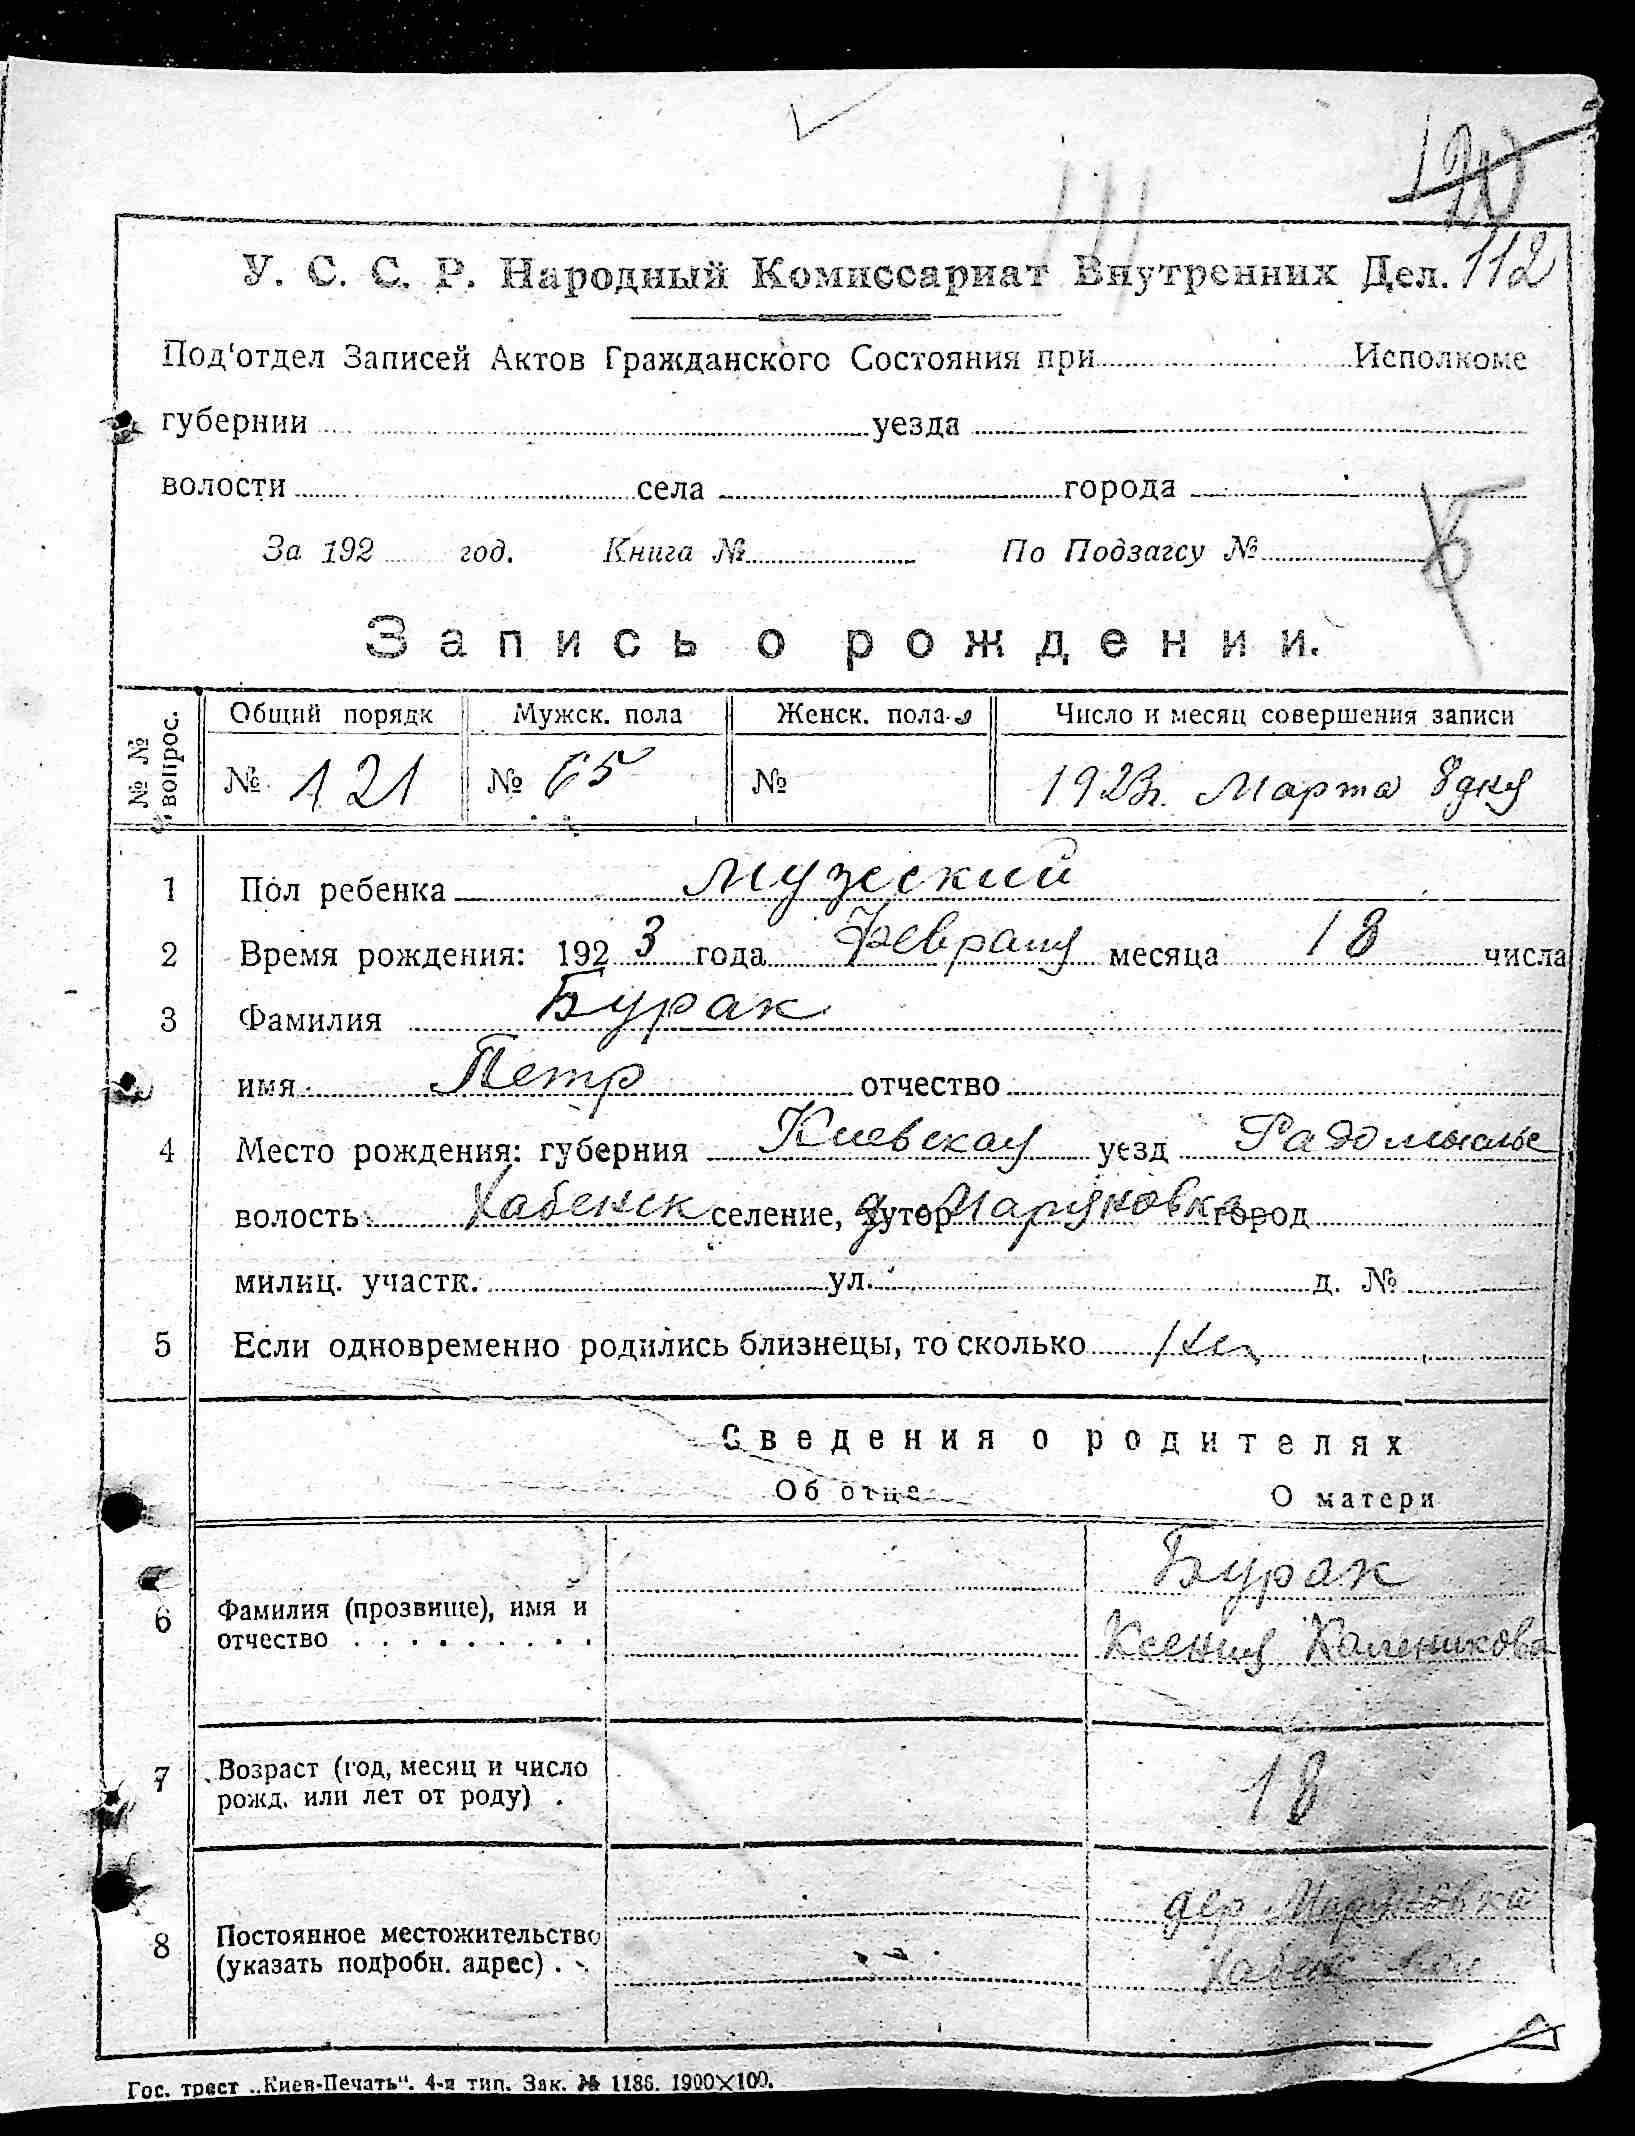 112
У. С. С. Р. Народный Комиссариат Внутренних Дел.
Под'отдел Записей Актов Гражданского Состояния при Исполкоме
губернии уезда
волости села города
За 192 год. Книга № По Подзагсу №
Запись о рождении.
№ № вопрос. Общий порядк Мужск. пола Женск. пола Число и месяц совершения записи
№ 121 № 65 № 1923г. Марта 8 дня
1 Пол ребенка Мужеский
2 Время рождения: 1923 года Февраля месяца 18 числа
3 Фамилия Бурак
имя Петр отчество
4 Место рождения: губерния Киевская уезд Радомысльс
волость Хабенск селение, хутор д. Маряновка город
милиц. участк. ул. д. №
5 Если одновременно родились близнецы, то сколько
Сведения о родителях
Об отце О матери
Бурак
6 Фамилия (прозвище), имя и
отчество Ксения Каленикова
7 Возраст (год, месяц и число
рожд. или лет от роду) 18
дер Маряновка
8 Постоянное местожительство
(указать подробн. адрес) Хабенск вол
Гос. трест „Киев-Печать“. 4-я тип. Зак. № 1186. 1900×100.